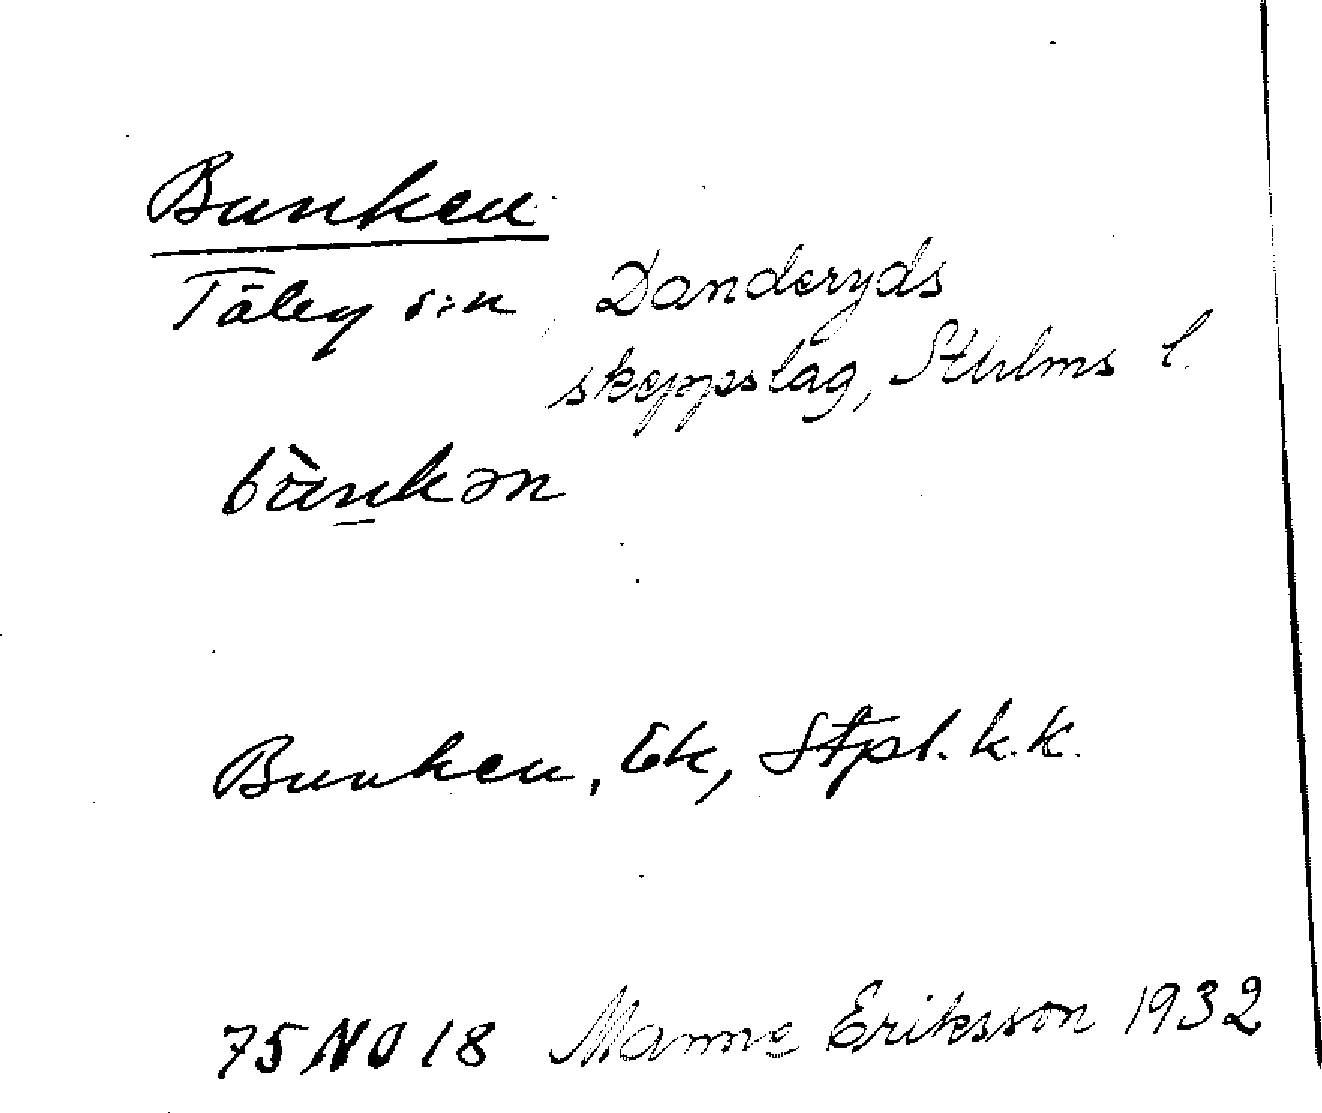 Bunken
Täby s:n, Danderyds
skeppslag, Sthlms l.
bùnkən
Bunken, Ek, Stpl. k.k.
75 NO 18 Manne Eriksson 1932